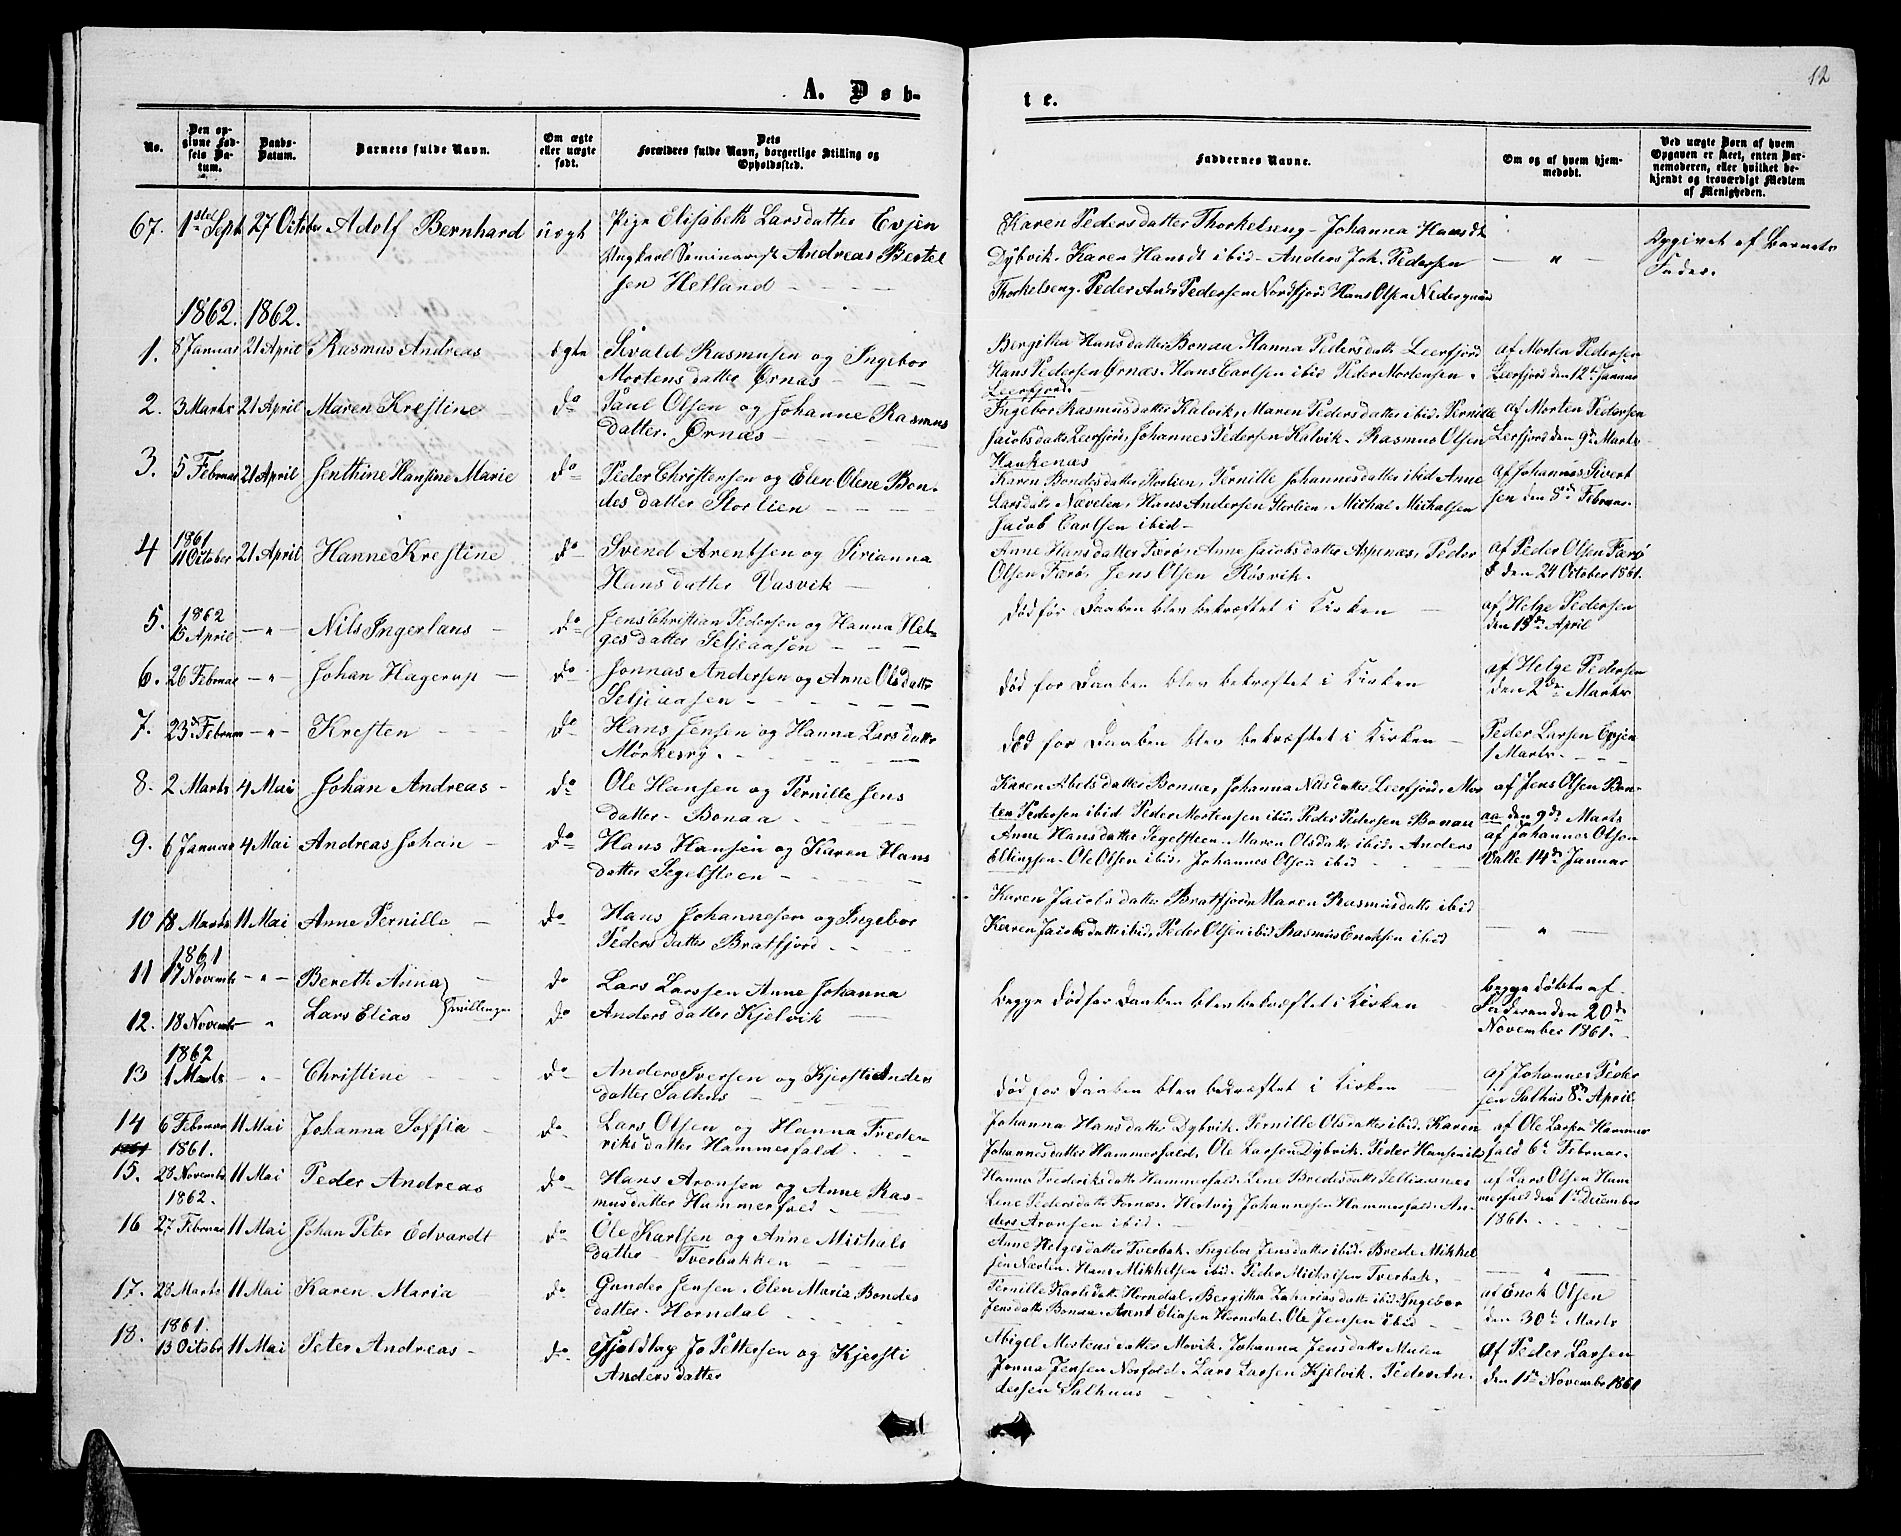 12
A. Døb-
te.
No.
Den opgivne Fødsels Datum.
Daabs-Datum.
Barnets fulde Navn.
Om ægte eller uægte født.
Dets Forældres fulde Navn, borgerlige Stilling og Opholdssted.
Faddernes Navne.
Om og af hvem hjemmedøbt.
Ved uægte Børn af hvem Opgaven er skeet, enten Barnemoderen, eller hvilket bekjendt og troværdigt Medlem af Menigheden.
67. 1ste Sept 27 October Adolf Bernhard uægt Pige Elisabeth Larsdatter Evjen
Ungkarl Seminarist Andreas Bertel
sen Helland
Karen Pedersdatter Thorkelseng - Johanna Hansdt
Dybvik. Karen Hansdt ibid - Anders Joh. Pedersen
Thorkelseng. Peder Ands Pedersen Nordfjord Hans Olsen Nedergaard
— " —
Opgivet af Barnets
Fader.
1862. 1862.
1. 8 Januar 21 April Rasmus Andreas egte Sivald Rasmusen og Ingebor
Mortensdatter Ørnæs
Bergitha Hansdatter Bonaa. Hanna Pedersdatter Leerfjord
Hans Pedersen Ørnæs. Hans Carlsen ibid Peder Mortensen
Leerfjord.
af Morten Pedersen
Leerfjord den 12te Januar
2. 3 Marts 21 April Maren Krestine do Paul Olsen og Johanne Rasmus
datter. Ørnæs
Ingebor Rasmusdatter Kalvik. Maren Pedersdatter ibid. Pernille
Jacobsdatter Leerfjord, Johannes Pedersen Kalvik. Rasmus Olsen
Haukenæs
af Morten Pedersen
Leerfjord den 9de Marts
3. 5 Februar 21 April Jenthine Hansine Marie do Peder Christensen og Elen Olene Bon-
desdatter Storlien
Karen Bondesdatter Storlien, Pernille Johannesdatter ibid Anne
Larsdatter Nævelen, Hans Andersen Storlien, Michal Michalsen
Jacob Carlsen ibid
af Johannes Sivert
sen den 8de Februar
4 1861 11 October 21 April Hanne Krestine do Svend Arentsen og Sirianna
Hansdatter Vasvik
Anne Hansdatter Færø. Anne Jacobsdatter Aspenæs, Peder
Olsen Færø, Jens Olsen Røsvik.
af Peder Olsen Færø
den 24 October 1861.
5. 1862 15 April — " — Nils Ingerlaus do Jens Christian Pedersen og Hanna Hel-
gesdatter Seljeaasen
død før Daaben blev bekræftet i Kirken
af Helge Pedersen
den 15de April
6. 26 Februar — " — Johan Hagerup do Jonnas Andersen og Anne Olsdatter
Seljeaasen
død før Daaben blev bekræftet i Kirken
af Helge Pedersen
den 2den Marts
7. 23de Februar — " — Kresten do Hans Jensen og Hanna Larsdatter
Mørkesry.
død før Daaben blev bekræftet i Kirken
Peder Larsen Evjen
1 Marts
8. 2 Marts 4 Mai Johan Andreas do Ole Hansen og Pernille Jens
datter. Bonaa
Karen Abelsdatter Bonaa, Johanna Nilsdatter Leerfjord, Mor
ten Pedersen ibid Peder Mortensen ibid, Peder Pedersen Bonaa
af Jens Olsen Bon-
aa den 9de Marts
9. 6 Januar 4 Mai Andreas Johan do Hans Hansen og Karen Hans
datter Segelsteen
Anne Hansdatter Segelsteen. Maren Olsdatter ibid. Anders
Ellingsen. Ole Olsen ibid. Johannes Olsen ibid
af Johannes Olson
Valle 14de Januar
10 18 Marts 11 Mai Anne Pernille do Hans Johannesen og Ingebor
Pedersdatter Bratfjord
Karen Jacobsdatter Bratfjord Maren Rasmusdatter ibid
Karen Jacobsdatter ibid, Peder Olsen ibid Rasmus Enoksen ibid
— " —
11 1861 17 November — " — Bereth Anna do Lars Larssen Anne Johanna
12. 18 November " Lars Elias Tvillinger do Andersdatter Kjelvik
Begge død før Daaben blev bekræftet i Kirken
Begge døbte af
Faderen den 20de
November 1861.
13 1862 1 Marts " Christine do Anders Iversen og Kjersti Anders
datter Salhus
død før Daaben blev bekræftet i Kirken
af Johannes Peder
sen Salhus 8de April
14 6 Februar 11 Mai Johanna Soffia do Lars Olsen og Hanna Frede-
riksdatter Hammerfald
Johanna Hansdatter Dybvik. Pernille Olsdatter ibid. Karen
Johannesdatter Hammerfald, Ole Larsen Dybvik. Peder Hansen ib
af Ole Larsen Hammer
fald 6te Februar.
15. 1861. 28 November 11 Mai Peder Andreas do Hans Aronsen og Anne Ras-
musdatter Hammerfald
Hanna Frederiksdatter Hammerfald. Lene Bredesdatter Selliaesnes
Lene Pedersdatter Fornæs. Hertvig Johannesen Hammerfald. An-
ders Aronsen ibid.
af Lars Olsen Ham
merfald den 1ste December
1861.
16 1862. 27 Februar 11 Mai Johan Peter Edvardt do Ole Karlsen og Anne Michals
datter Tverbakken
Anne Helgesdatter Tverbak. Ingebor Jensdatter ibid. Brede Mikkel
sen Nærlin. Hans Mikkelsen ibid. Peder Mikkelsen Tverbak.
— " —
17. 28 Marts 11 Mai Karen Maria do Gunder Jensen. Elen Maria Bondes
datter. Horndal
Pernille Karlsdatter Horndal. Bergitha Zakariasdatter ibid. Ingebor
Jensdatter Bonaa. Arent Eliasen Horndal. Ole Jensen ibid
af Enok Olsen
den 30te Marts
18. 1861. 13 October 11 Mai Peter Andreas do Jo Pettersen og Kjersti
Andersdatter
Abigel Mosteusdatter Movik. Johanna Jensdatter Mulen
Jonna Jensen Norfold. Lars Larsen Kjelvik. Peder An-
dersen Salhuus
af Peder Larsen
den 1ste November 1861